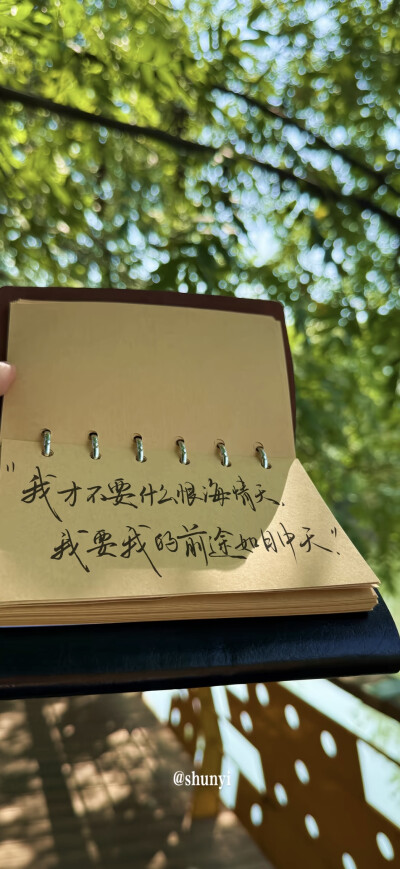 "我才不要什么恨海情天.
我要我的前途如日中天."
@shunyi